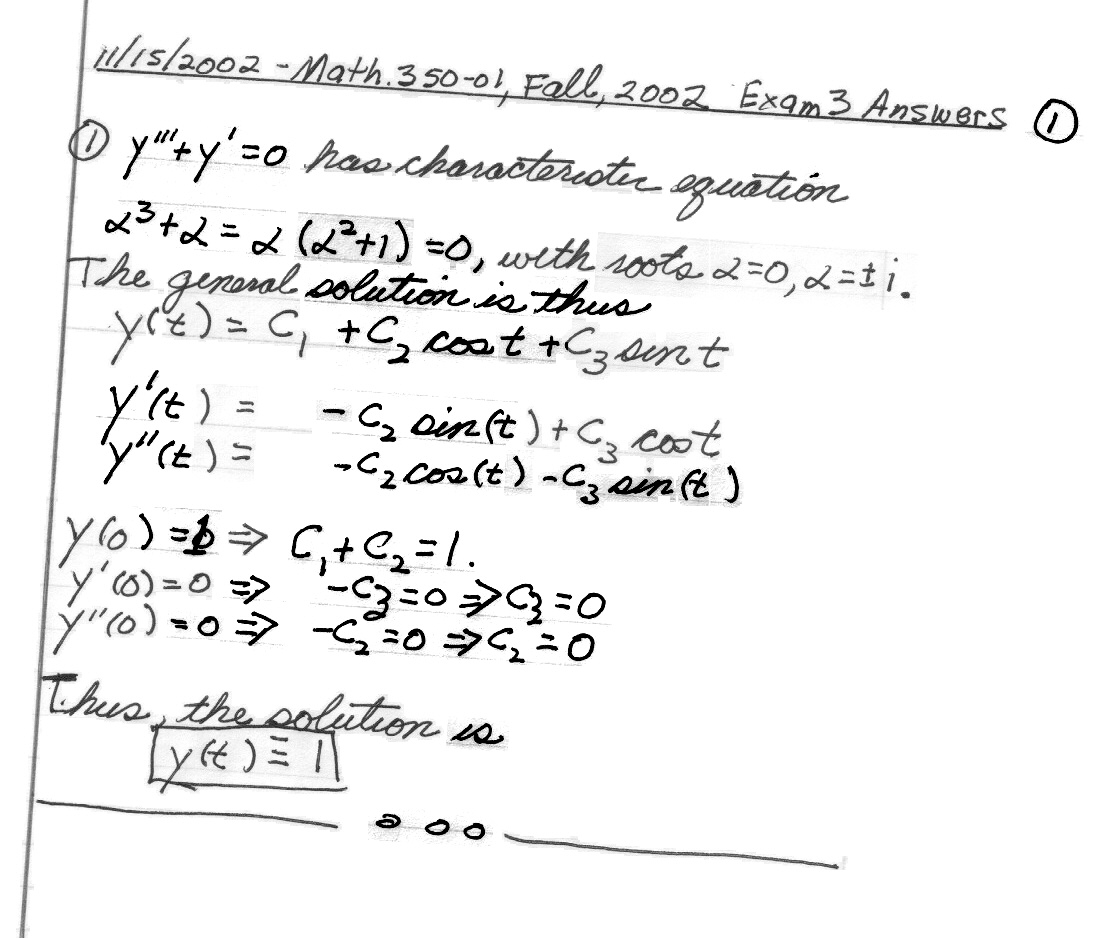 11/15/2002 - Math. 350-01, Fall, 2002 Exam 3 Answers ①
① y'''+y'=0 has characteristic equation
α³+α = α (α²+1) =0, with roots α=0, α=±i.
The general solution is thus
y(t) = C₁ + C₂ cos t + C₃ sin t
y'(t) = - C₂ sin(t) + C₃ cos t
y''(t) = - C₂ cos(t) - C₃ sin(t)
y(0) = 1 ⇒ C₁ + C₂ = 1.
y'(0) = 0 ⇒ -C₃ = 0 ⇒ C₃ = 0
y''(0) = 0 ⇒ -C₂ = 0 ⇒ C₂ = 0
Thus, the solution is
y(t) ≡ 1